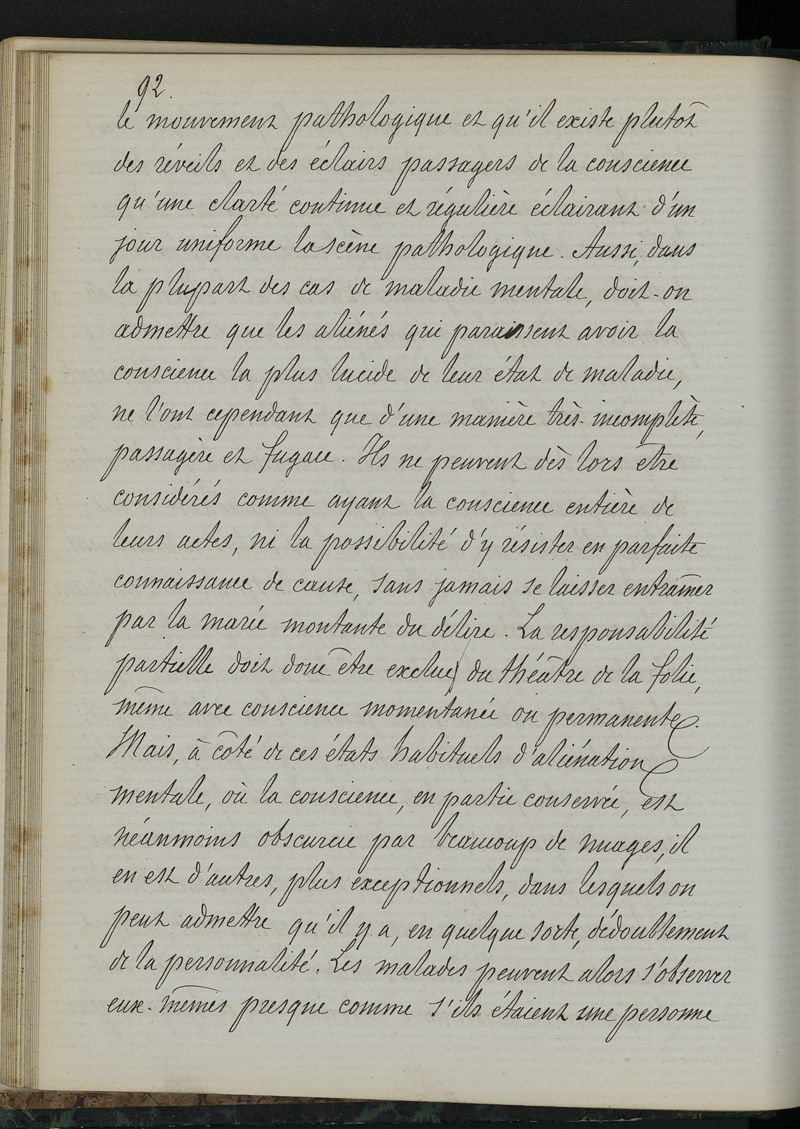 92.
le mouvement pathologique et qu'il existe plutôt
des réveils et des éclairs passagers de la conscience
qu'une clarté continue et régulière éclairant d'un
jour uniforme la scène pathologique. Aussi, dans
la plupart des cas de maladie mentale, doit-on
admettre que les aliénés qui paraissent avoir la
conscience la plus lucide de leur état de maladie,
ne l'ont cependant que d'une manière très-incomplète,
passagère et fugace. Ils ne peuvent dès lors être
considérés comme ayant la conscience entière de
leurs actes, ni la possibilité d'y résister en parfaite
connaissance de cause, sans jamais se laisser entraîner
par la marée montante du délire. La responsabilité
partielle doit donc être exclue du théâtre de la folie,
même avec conscience momentanée ou permanente.
Mais, à côté de ces états habituels d'aliénation
mentale, où la conscience, en partie conservée, est
néanmoins obscurcie par beaucoup de nuages, il
en est d'autres, plus exceptionnels, dans lesquels on
peut admettre qu'il y a, en quelque sorte, dédoublement
de la personnalité. Les malades peuvent alors s'observer
eux-mêmes presque comme s'ils étaient une personne